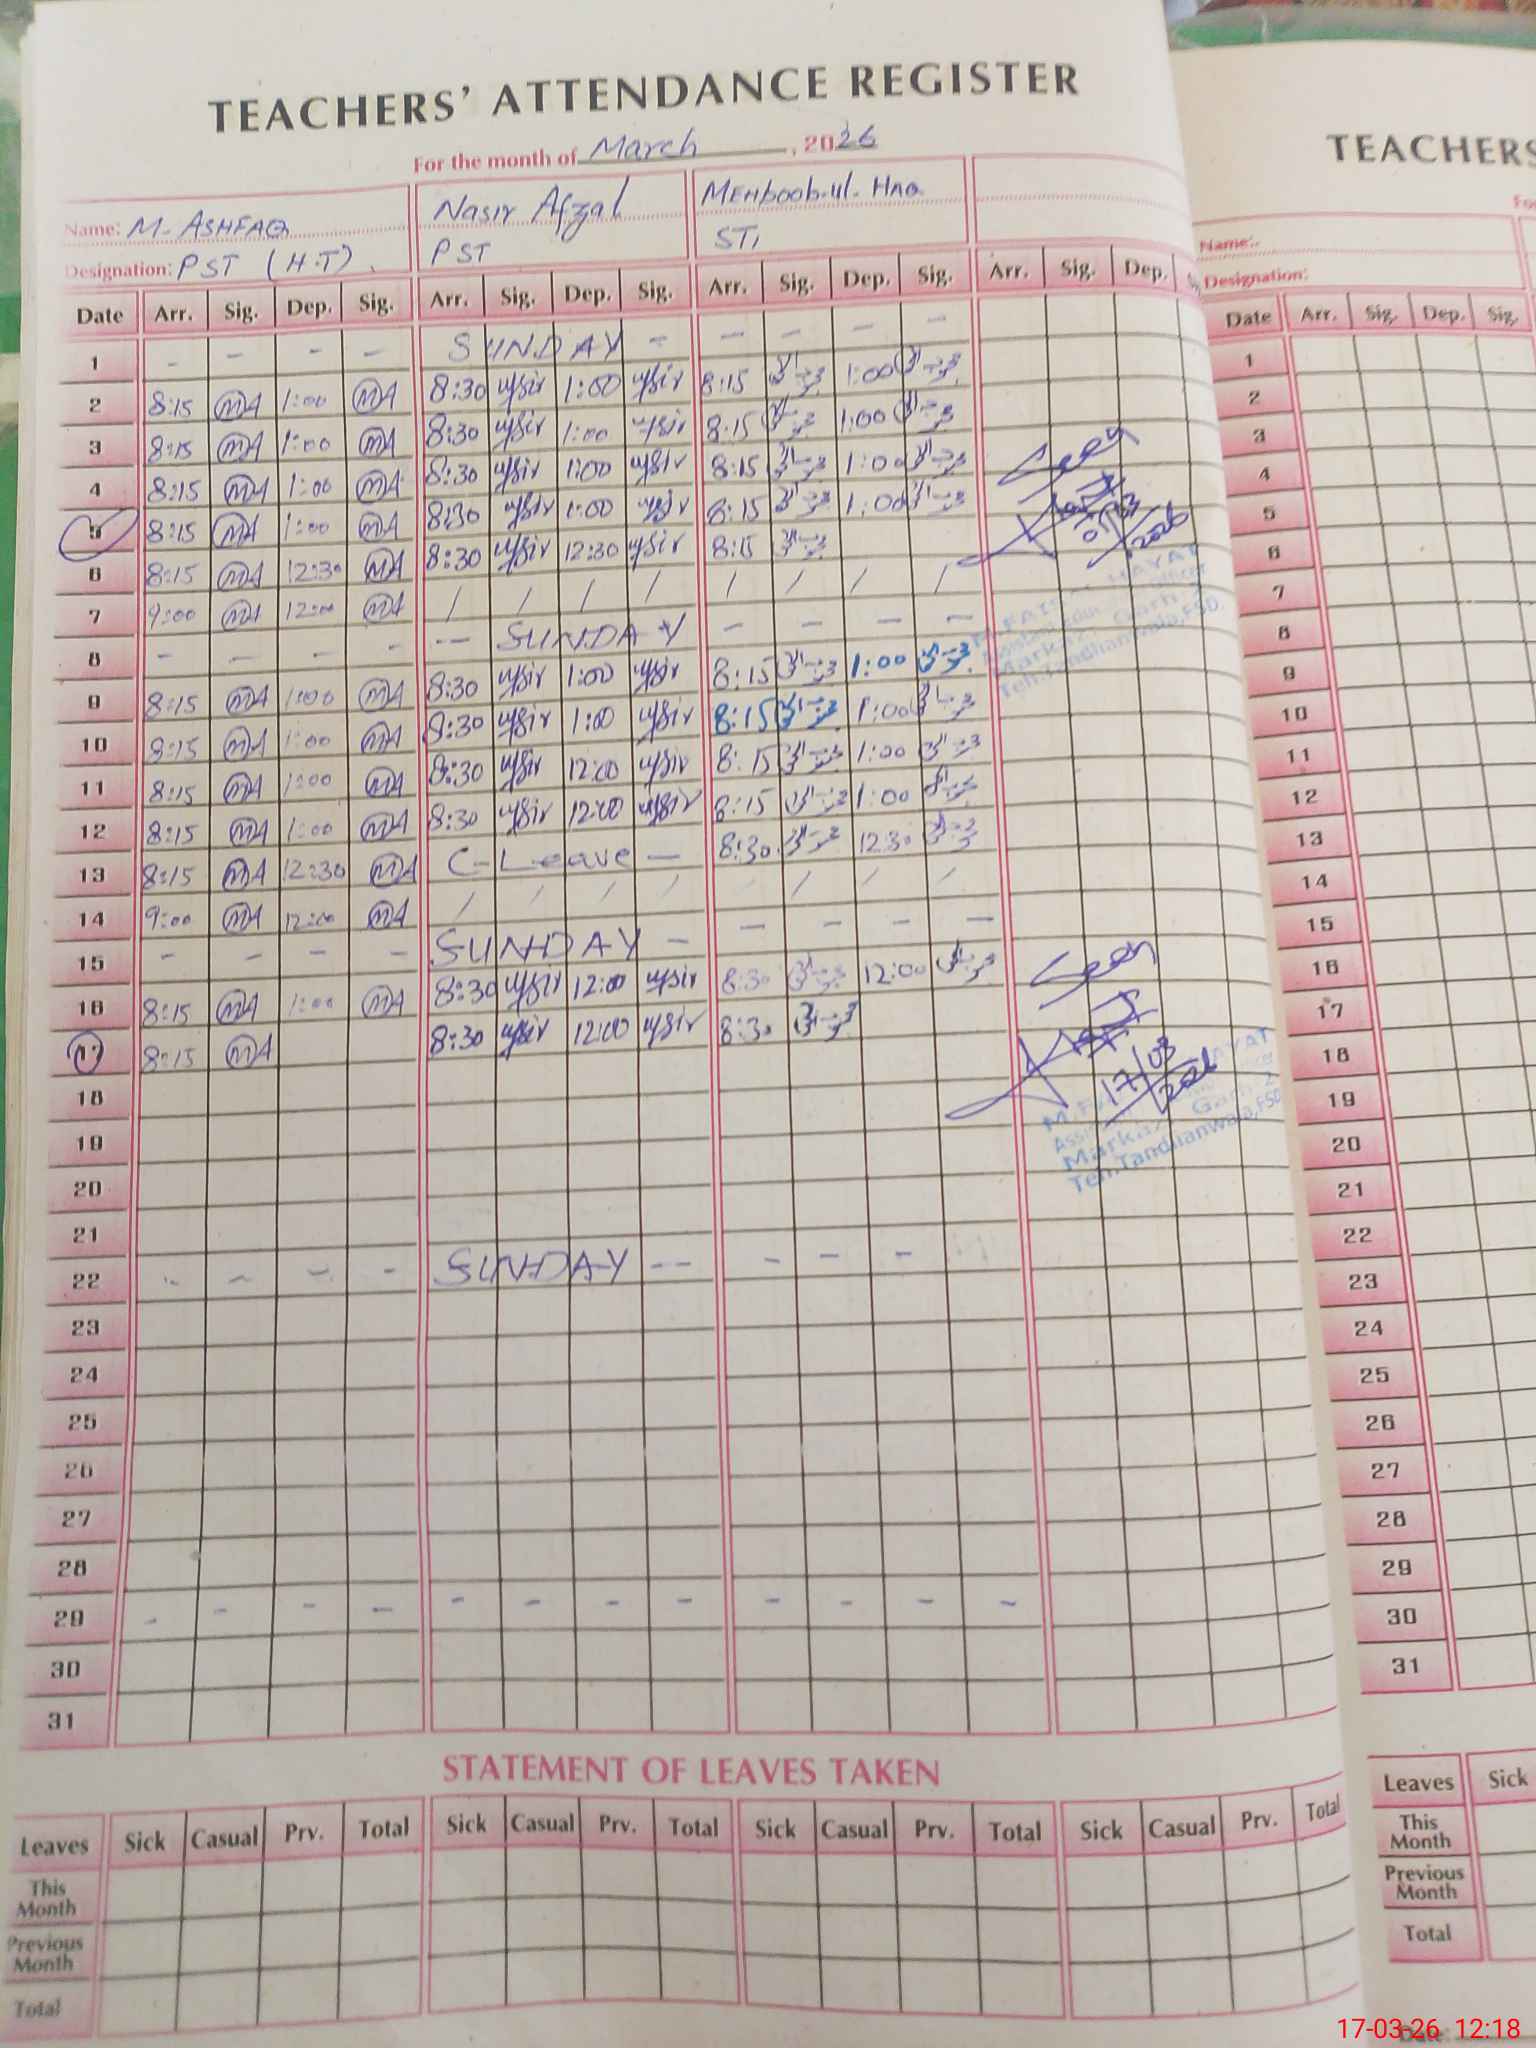 TEACHERS' ATTENDANCE REGISTER
For the month of March, 2026
Name: M. ASHFAQ Nasir Afzal MEHboob-ul-HAQ
Designation: PST (H.T). PST STI
Date Arr. Sig. Dep. Sig. Arr. Sig. Dep. Sig. Arr. Sig. Dep. Sig. Arr. Sig. Dep.
1 - - - - SUNDAY - - - - -
2 8:15 MA 1:00 MA 8:30 1:00 8:15 1:00
3 8:15 MA 1:00 MA 8:30 1:00 8:15 1:00
4 8:15 MA 1:00 MA 8:30 1:00 8:15 1:00
5 8:15 MA 1:00 MA 8:30 1:00 8:15 1:00
6 8:15 MA 12:30 MA 8:30 12:30 8:15
7 9:00 MA 12:00 MA / / / / / / / /
8 - - - - -- SUNDAY - - - -
9 8:15 MA 1:00 MA 8:30 1:00 8:15 1:00
10 8:15 MA 1:00 MA 8:30 1:00 8:15 1:00
11 8:15 MA 1:00 MA 8:30 12:00 8:15 1:00
12 8:15 MA 1:00 MA 8:30 12:00 8:15 1:00
13 8:15 MA 12:30 MA C-Leave - 8:30 12:30
14 9:00 MA 12:00 MA / / / / / / /
15 - - - - SUNDAY - - - - -
16 8:15 MA 1:00 MA 8:30 12:00 8:30 12:00
17 8:15 MA 8:30 12:00 8:30
18
19
20
21
22 - - - - SUNDAY -- - - -
23
24
25
26
27
28
29 - - - - - - - - - - - -
30
31
Seen
05/03/2026
M.FAISAL HAYAT
Markaz Garh-2
Teh.Tandlianwala,FSD.
Seen
17/03/2026
HAYAT
Markaz Garh-2
Teh.Tandlianwala,FSD.
STATEMENT OF LEAVES TAKEN
Leaves Sick Casual Prv. Total Sick Casual Prv. Total Sick Casual Prv. Total Sick Casual Prv. Total
This Month
Previous Month
Total
TEACHERS
Name:
Designation:
Date Arr. Sig. Dep. Sig.
1
2
3
4
5
6
7
8
9
10
11
12
13
14
15
16
17
18
19
20
21
22
23
24
25
26
27
28
29
30
31
Leaves Sick
This Month
Previous Month
Total
Date:
17-03-26 12:18